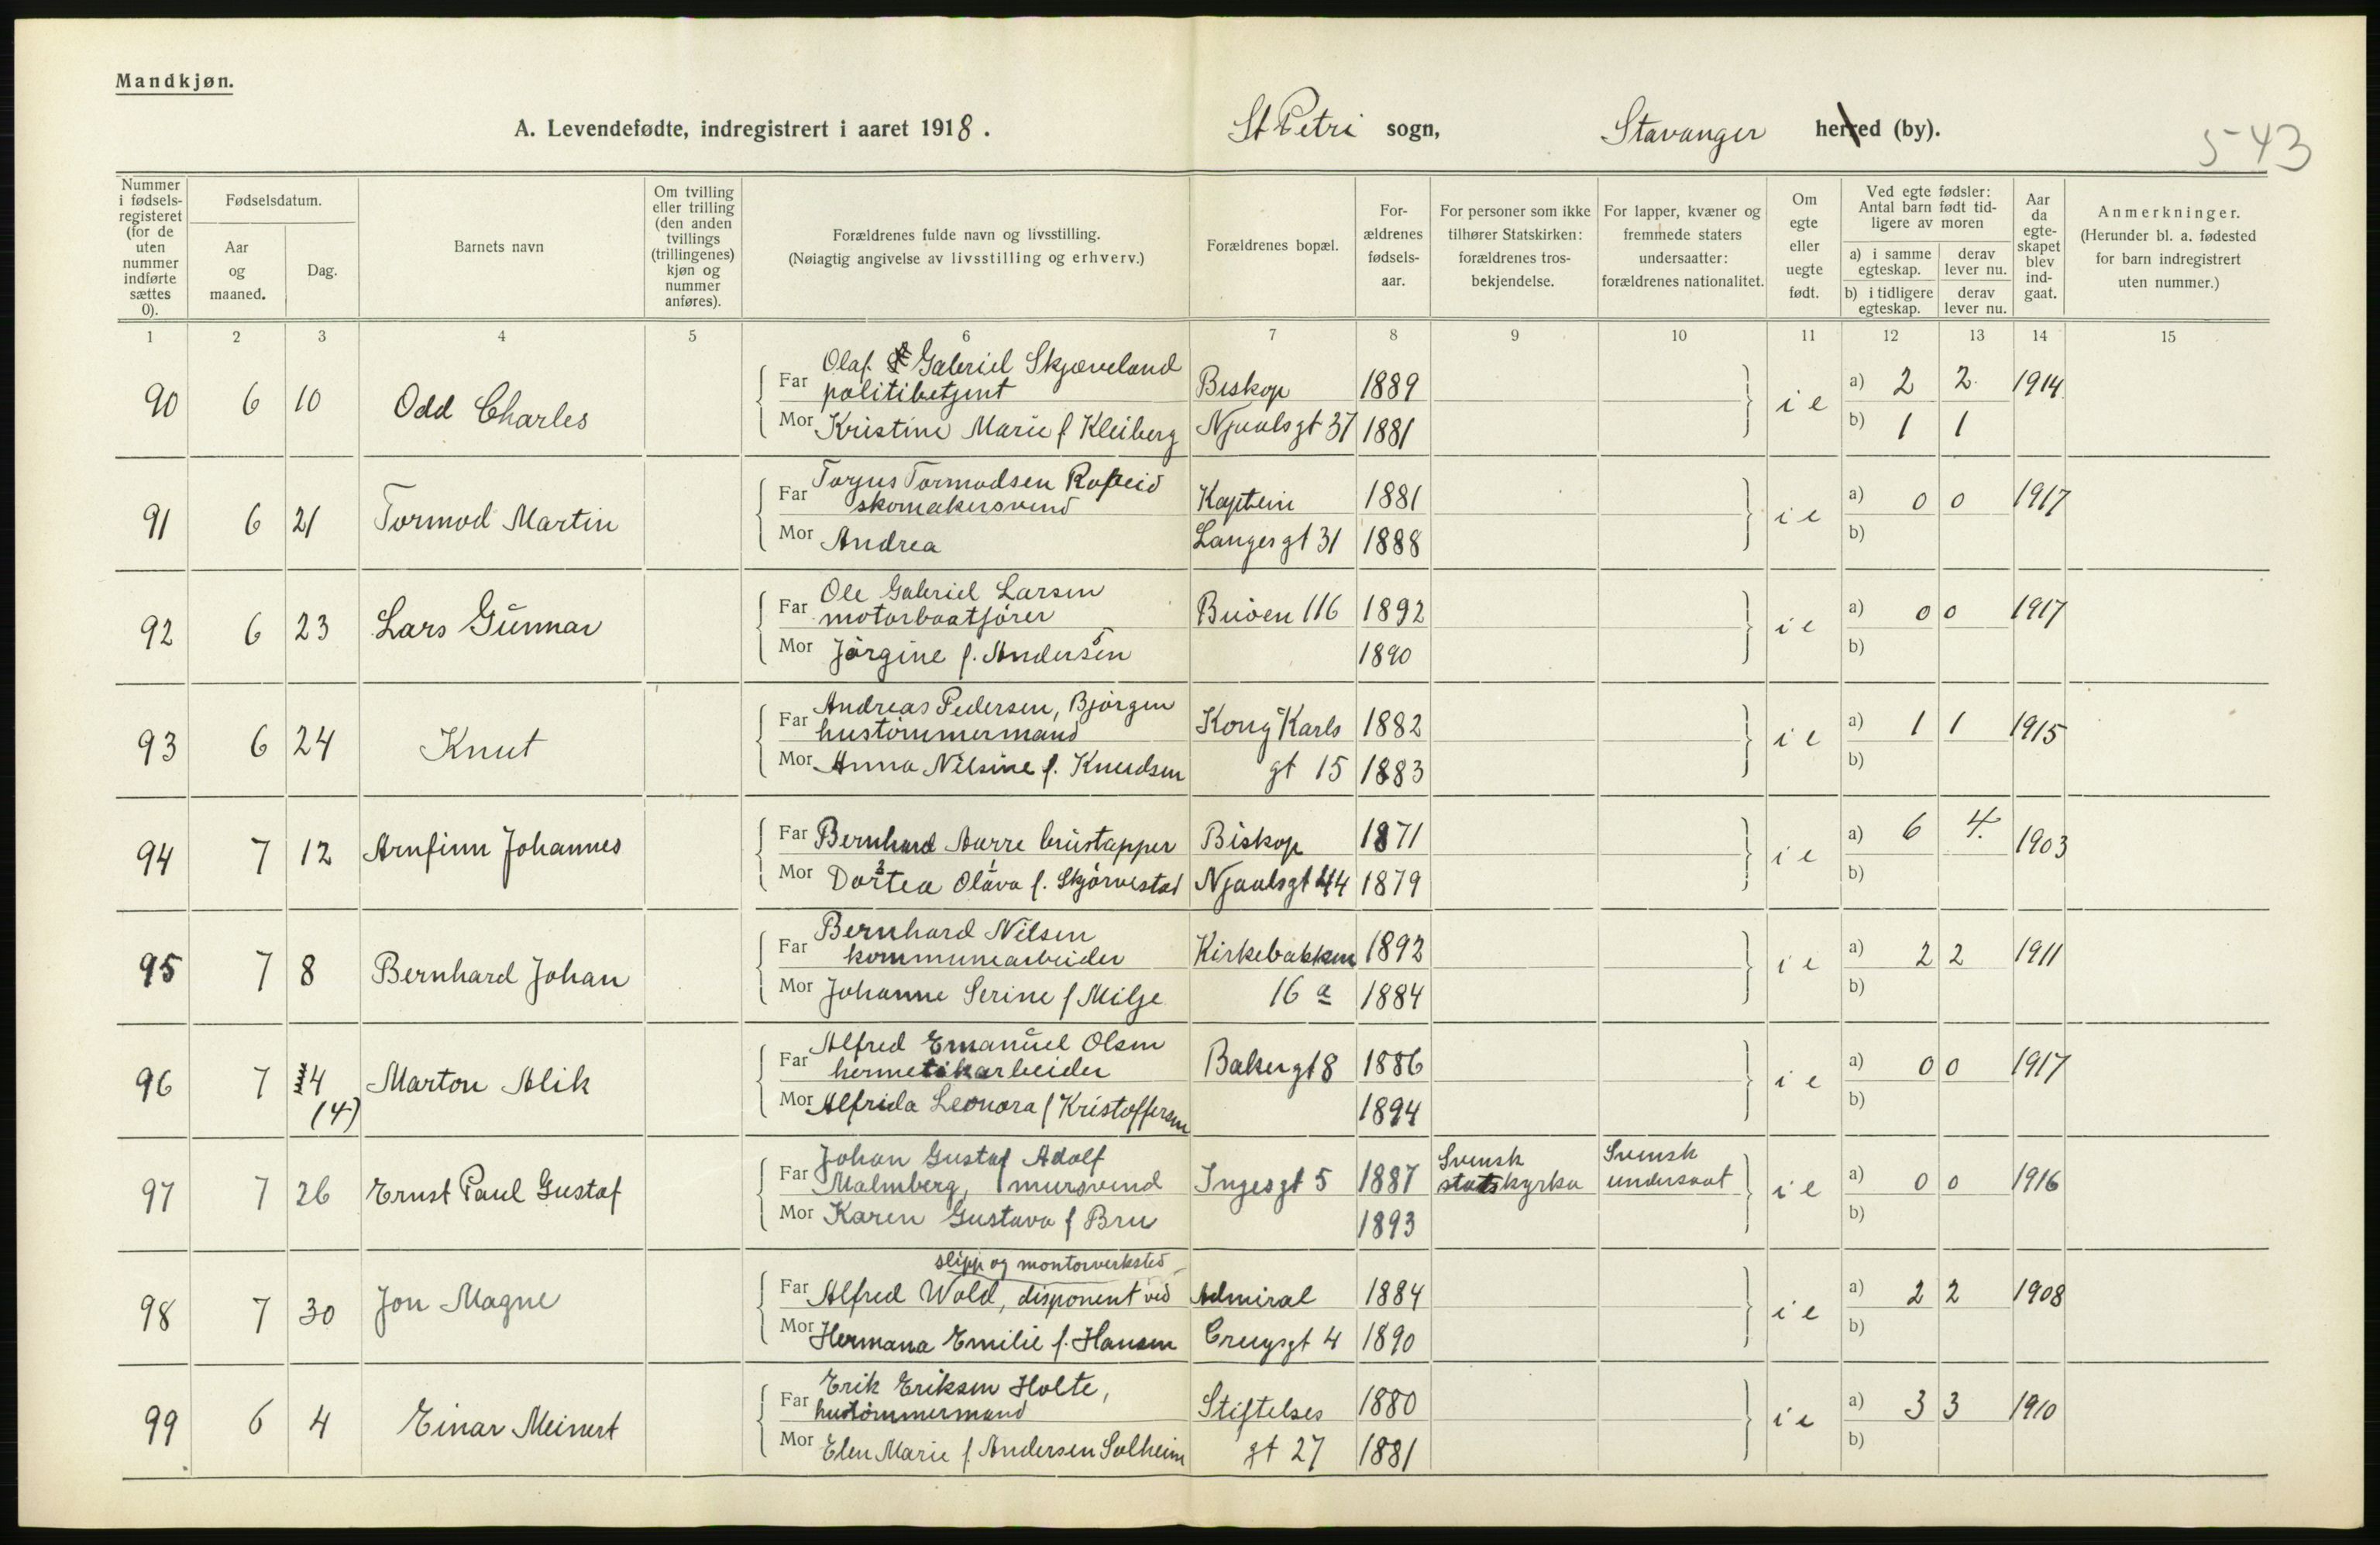 Mandkjøn.
A. Levendefødte, indregistrert i aaret 1918. St Petri sogn, Stavanger herred (by).
543
Nummer i fødselsregisteret (for de uten nummer indførte sættes 0).
Fødselsdatum.
Aar og maaned.
Dag.
Barnets navn
Om tvilling eller trilling (den anden tvillings (trillingenes) kjøn og nummer anføres).
Forældrenes fulde navn og livsstilling.
(Nøiagtig angivelse av livsstilling og erhverv.)
Forældrenes bopæl.
Forældrenes fødselsaar.
For personer som ikke tilhører Statskirken: forældrenes trosbekjendelse.
For lapper, kvæner og fremmede staters undersaatter: forældrenes nationalitet.
Om egte eller uegte født.
Ved egte fødsler: Antal barn født tidligere av moren
a) i samme egteskap. derav lever nu.
b) i tidligere egteskap. derav lever nu.
Aar da egteskapet blev indgaat.
Anmerkninger.
(Herunder bl. a. fødested for barn indregistrert uten nummer.)
1 2 3 4 5 6 7 8 9 10 11 12 13 14 15
90 6 10 Odd Charles
Far Olaf Gabriel Skjæveland
politibetjent Biskop 1889
Mor Kristine Marie f Kleiberg Njaalsgt 37 1881
i e a) 2 2 1914
b) 1 1
91 6 21 Tormod Martin
Far Torjus Tormodsen
skomakersvend Kaptein 1881
Mor Andrea Langes gt 31 1888
i e a) 0 0 1917
b)
92 6 23 Lars Gunnar
Far Ole Gabriel Larsen
motorbaatfører Buøen 116 1892
Mor Jørgine f. Andersen 1890
i e a) 0 0 1917
b)
93 6 24 Knut
Far Andreas Pedersen, Bjørgen
hustømmermand Kong Karls 1882
Mor Anna Nilsine f. Knudsen gt 15 1883
i e a) 1 1 1915
b)
94 7 12 Arnfinn Johannes
Far Bernhard Aarre Biskop 1871
Mor Dortea Olava f. Skjørvestad Njaalsgt 44 1879
i e a) 6 4 1903
b)
95 7 8 Bernhard Johan
Far Bernhard Nilsen
kommunearbeider Kirkebakken 1892
Mor Johanne Serine f Milje 16 a 1884
i e a) 2 2 1911
b)
96 7 4 (4) Marton Alik
Far Alfred Emanuel Olsen
hermetikarbeider Bakergt 8 1886
Mor Alfrida Leonora f Kristoffersen 1894
i e a) 0 0 1917
b)
97 7 26 Ernst Paul Gustaf
Far Johan Gustaf Adolf
Malmberg, mursvend Ingesgt 5 1887 Svensk statskyrka Svensk undersaat
Mor Karen Gustava f Bru 1893
i e a) 0 0 1916
b)
98 7 30 Jon Magne
slipp og montorverksted
Far Alfred Wold, disponent ved Admiral 1884
Mor Hermana Emilie f. Hansen Cruysgt 4 1890
i e a) 2 2 1908
b)
99 6 4 Einar Meinert
Far Erik Eriksen Holte,
hustømmermand Stiftelses 1880
Mor Elen Marie f. Andersen Solheim gt 27 1881
i e a) 3 3 1910
b)